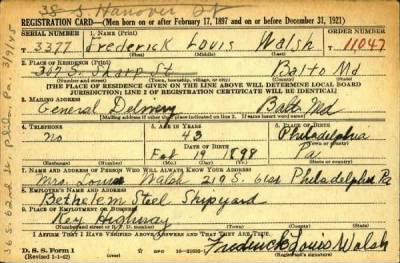 38 S. Hanover St
REGISTRATION CARD—(Men born on or after February 17, 1897 and on or before December 31, 1921)
SERIAL NUMBER 1. NAME (Print) ORDER NUMBER
S 3377 Frederick Louis Walsh T 11047
(First) (Middle) (Last)
2. PLACE OF RESIDENCE (Print)
307 S. Sharp St Balto Md
(Number and street) (Town, township, village, or city) (County) (State)
[THE PLACE OF RESIDENCE GIVEN ON THE LINE ABOVE WILL DETERMINE LOCAL BOARD
JURISDICTION; LINE 2 OF REGISTRATION CERTIFICATE WILL BE IDENTICAL]
3. MAILING ADDRESS
General Delivery Balto Md
[Mailing address if other than place indicated on line 2. If same insert word same]
4. TELEPHONE 5. AGE IN YEARS 6. PLACE OF BIRTH
no 43 Philadelphia
DATE OF BIRTH
Feb 19 1898 Pa
7. NAME AND ADDRESS OF PERSON WHO WILL ALWAYS KNOW YOUR ADDRESS
Mrs. Louis Walsh 219 S. 61st Philadelphia Pa
8. EMPLOYER'S NAME AND ADDRESS
Bethelem Steel Shipyard
9. PLACE OF EMPLOYMENT OR BUSINESS
Key Highway
I AFFIRM THAT I HAVE VERIFIED ABOVE ANSWERS AND THAT THEY ARE TRUE.
D. S. S. Form 1
(Revised 1-1-42) Frederick Louis Walsh
36 S. 62nd St. Phila Pa 3/9/45